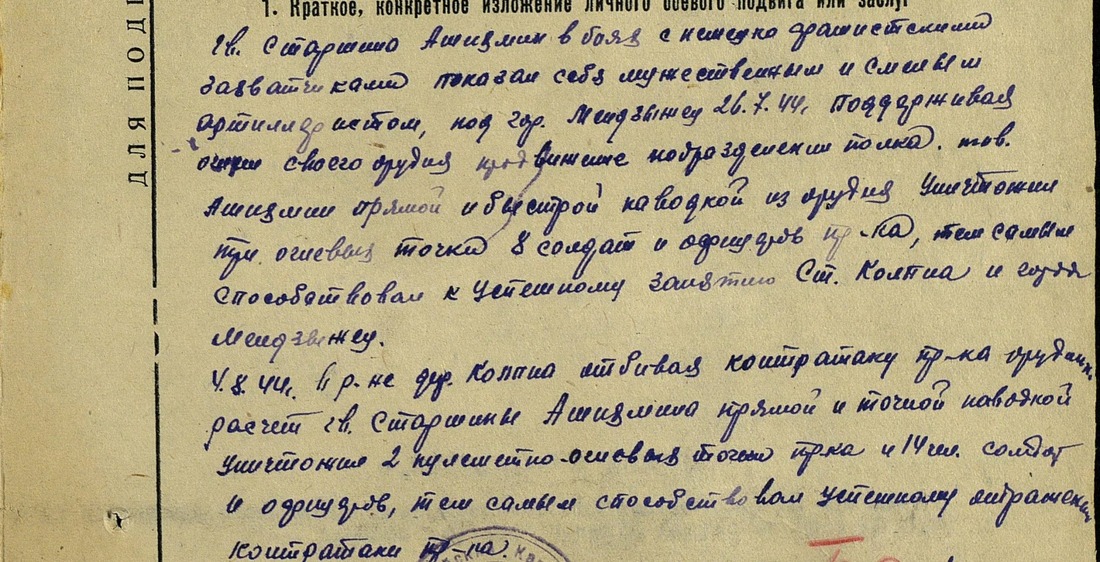 1. Краткое, конкретное изложение личного боевого подвига или заслуг
гв. Старшина Ашизмин в боях с немецко фашистскими
захватчиками показал себя мужественным и смелым
артиллеристом, под гор. Мендзыжец 26.7.44г. Поддерживая
огнем своего орудия продвижение подразделении полка. тов.
Ашизмин прямой и быстрой наводкой из орудия Уничтожил
три огневых точки 8 солдат и офицеров пр-ка, тем самым
способствовал к Успешному занятию Ст. Колпна и города
Мендзыжец.
4.8.44г. В р-не дер. Колпна отбивая контратаку пр-ка орудийн.
расчет гв. Старшины Ашизмина прямой и точной наводкой
Уничтожил 2 пулеметно-огневых точки пр-ка и 14 чел. солдат
и офицеров, тем самым способствовал успешному отражению
контратаки пр-ка.
ДЛЯ ПОДШ